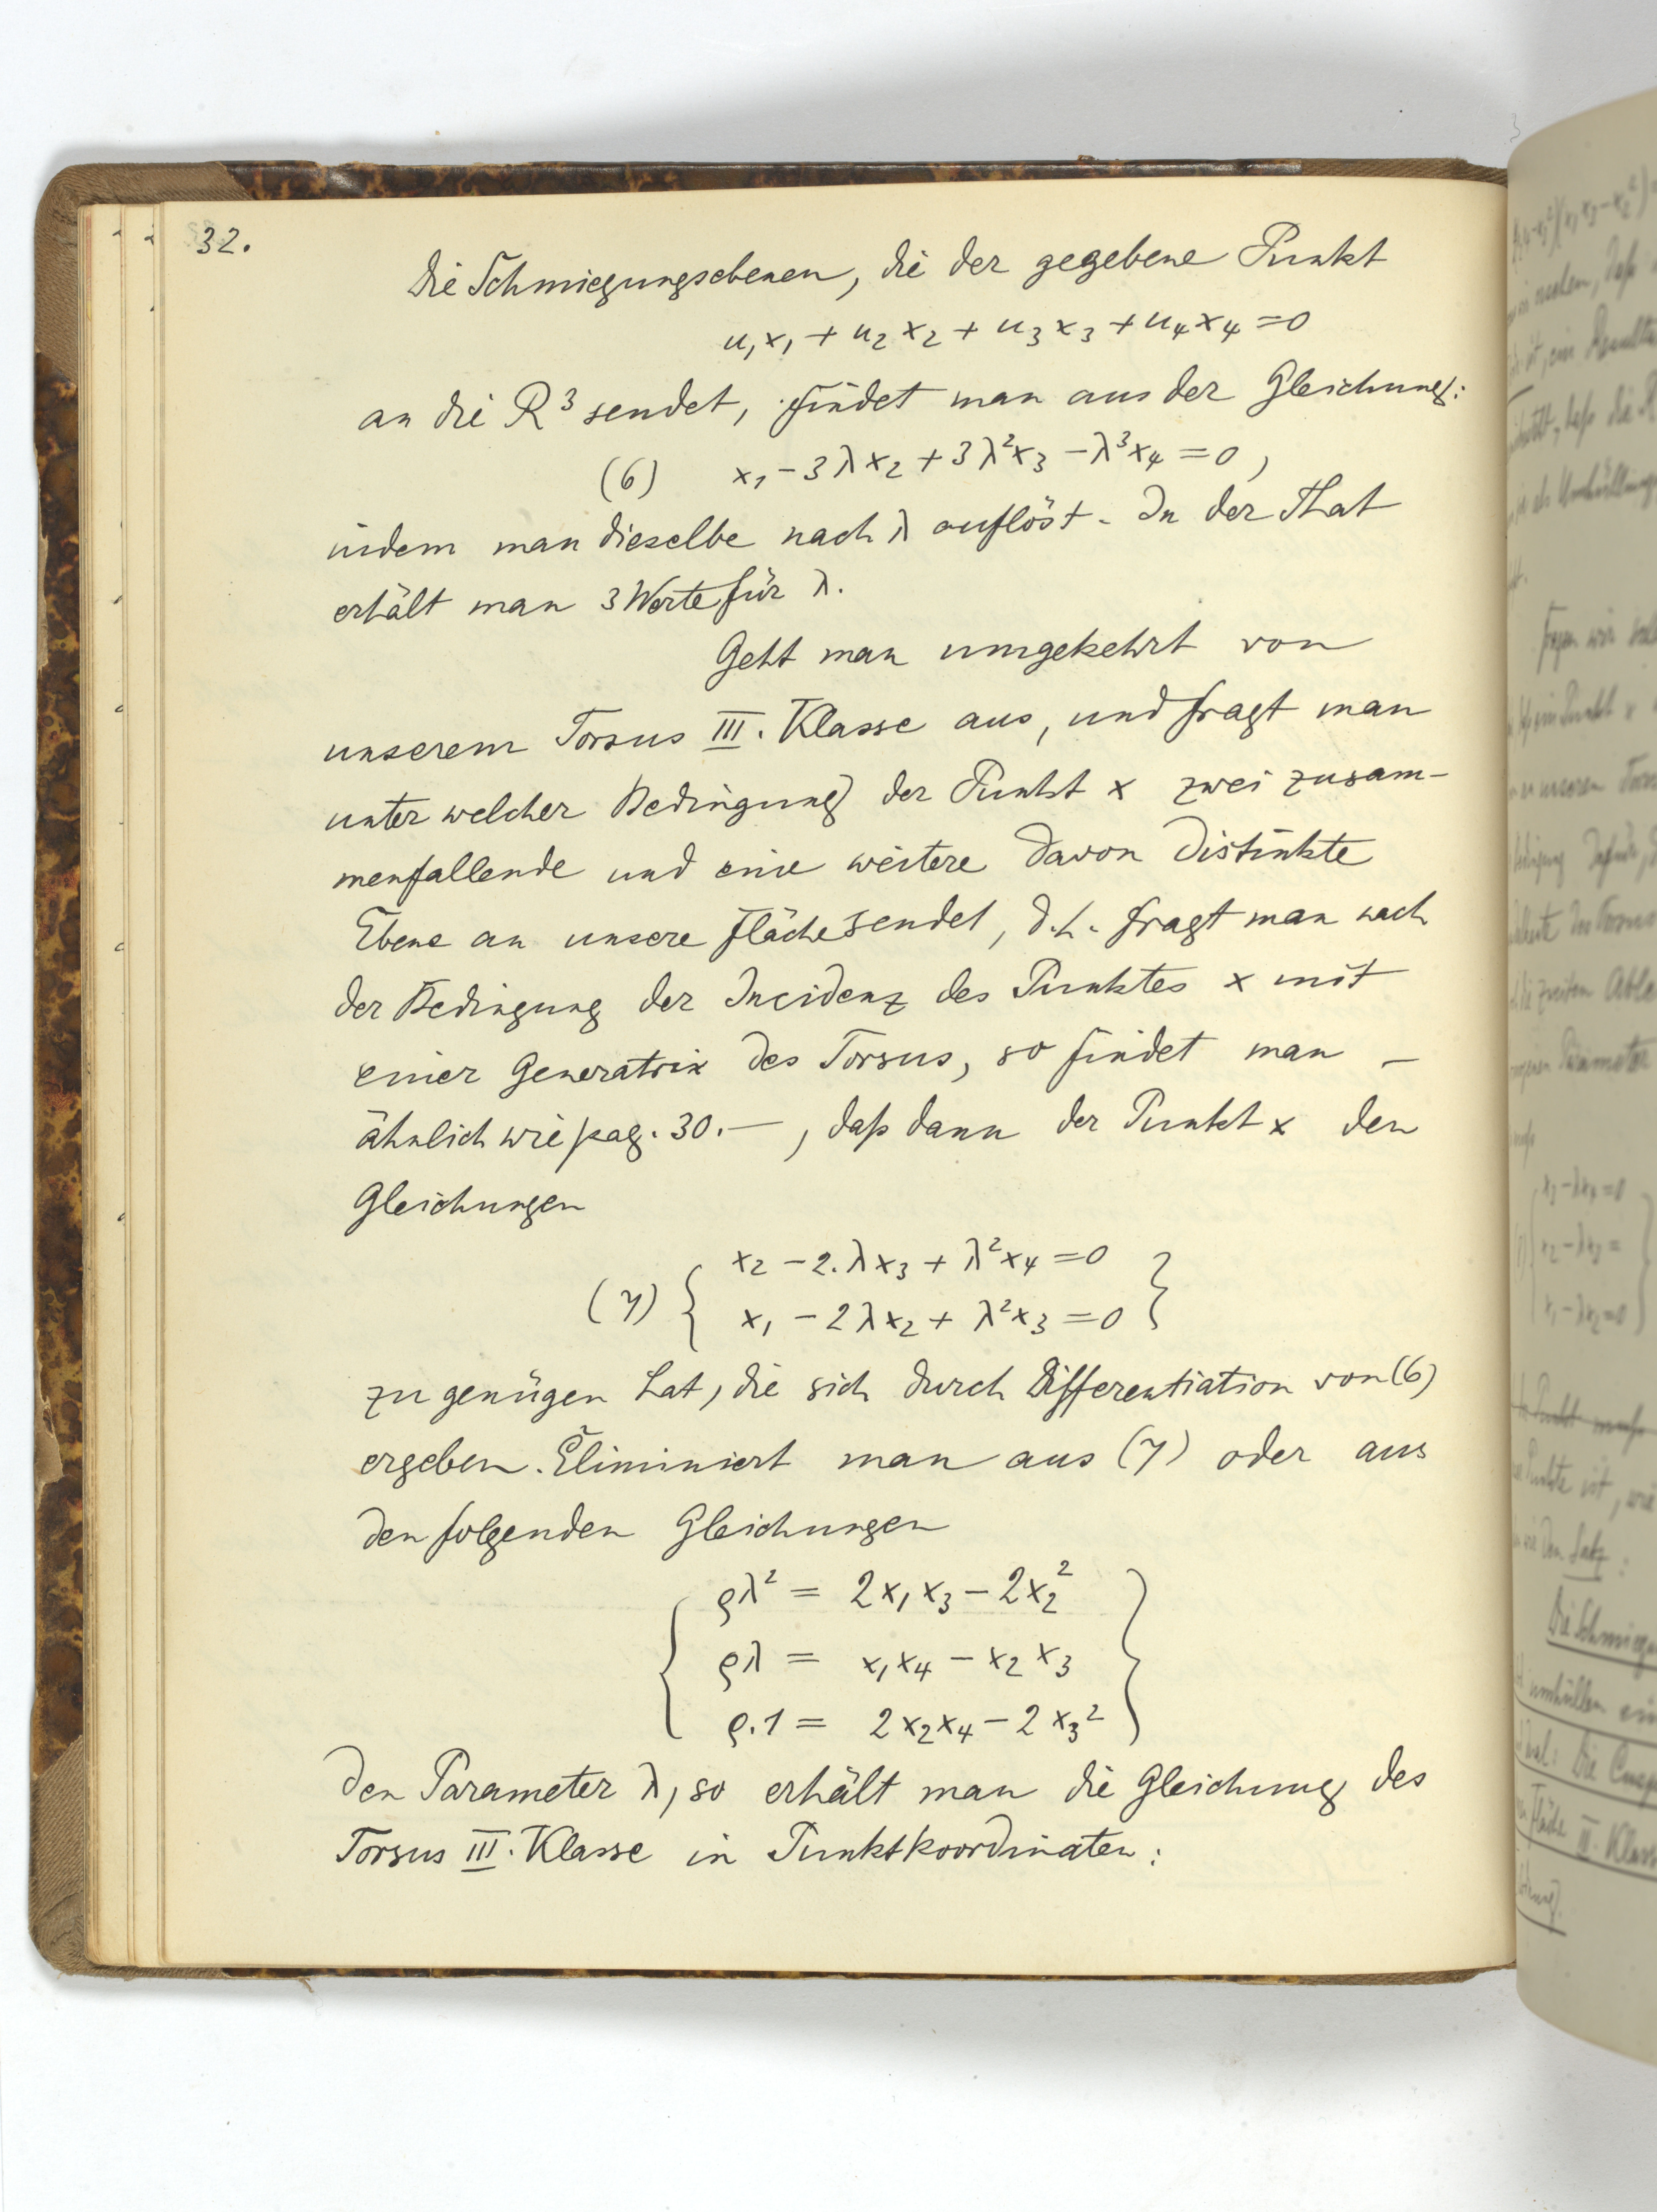 32.
Die Schmiegungsebenen, die der gegebene Punkt
u₁x₁ + u₂x₂ + u₃x₃ + u₄x₄ = 0
an die R³ sendet, findet man aus der Gleichung:
(6) x₁ - 3λx₂ + 3λ²x₃ - λ³x₄ = 0,
indem man dieselbe nach λ auflöst. In der That
erhält man 3 Werte für λ.
Geht man umgekehrt von
unserem Torsus III. Klasse aus, und fragt man
unter welcher Bedingung der Punkt x zwei zusam-
menfallende und eine weitere davon distinkte
Ebene an unsere Fläche sendet, d.h. fragt man nach
der Bedingung der Incidenz des Punktes x mit
einer Generatrix des Torsus, so findet man –
ähnlich wie pag. 30. –, daß dann der Punkt x den
Gleichungen
(7) { x₂ - 2.λx₃ + λ²x₄ = 0
x₁ - 2λx₂ + λ²x₃ = 0 }
zu genügen hat, die sich durch Differentiation von (6)
ergeben. Eliminiert man aus (7) oder aus
den folgenden Gleichungen
{ ρλ² = 2x₁x₃ - 2x₂²
ρλ = x₁x₄ - x₂x₃
ρ.1 = 2x₂x₄ - 2x₃² }
den Parameter λ, so erhält man die Gleichung des
Torsus III. Klasse in Punktkoordinaten: